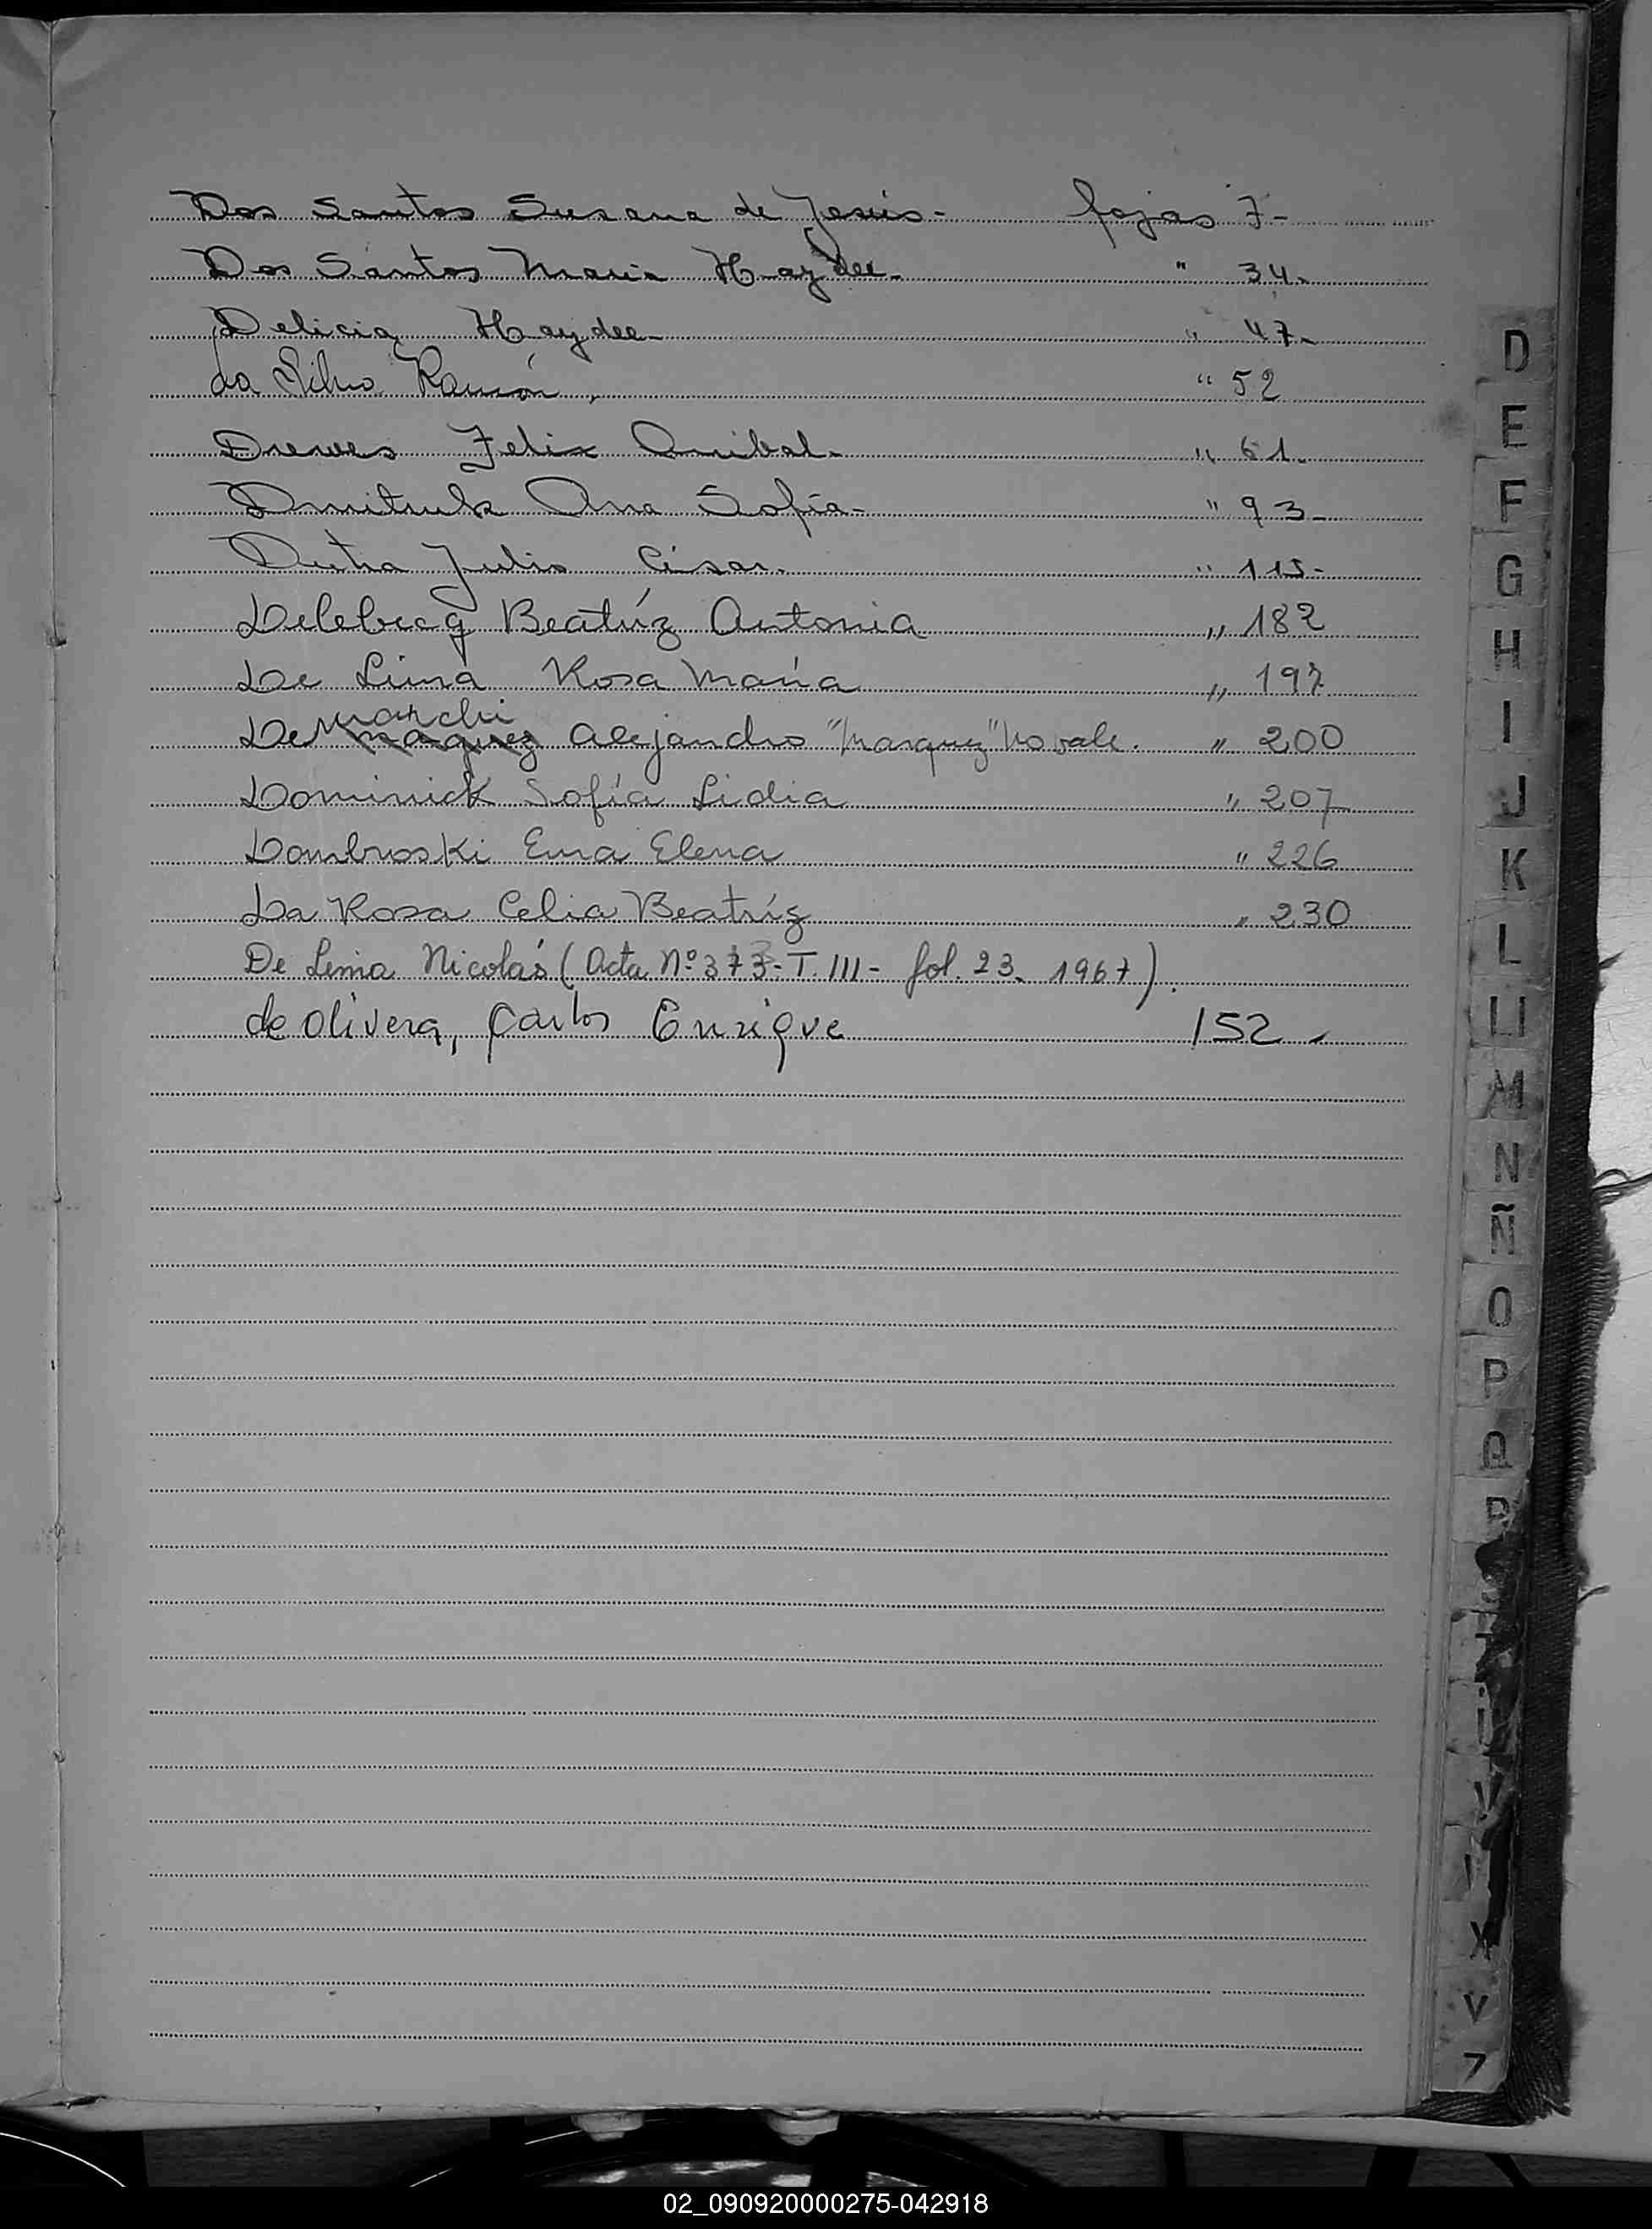 Dos Santos Susana de Jesús- fojas 7-
Dos Santos Maria Haydee- " 34-
Delicia Haydee- " 47-
da Silva Ramón, " 52
Drewes Felix Anibal- " 61-
Dmitruk Ana Sofía- " 93-
Dutra Julio César- " 115-
Beatríz Antonia " 182
De Lima Rosa María " 197
De Marchi Marquez Alejandro "Marquez" No vale. " 200
Dominick Sofía Lidia " 207
Dombroski Ema Elena " 226
Da Rosa Celia Beatríz " 230
De Lima Nicolás (Acta Nº 373- T. III- fol. 23- 1967).
de Olivera, Carlos Enrique 152-
D
E
F
G
H
I
J
K
L
LL
M
N
Ñ
O
P
Q
R
V
X
02_090920000275-042918